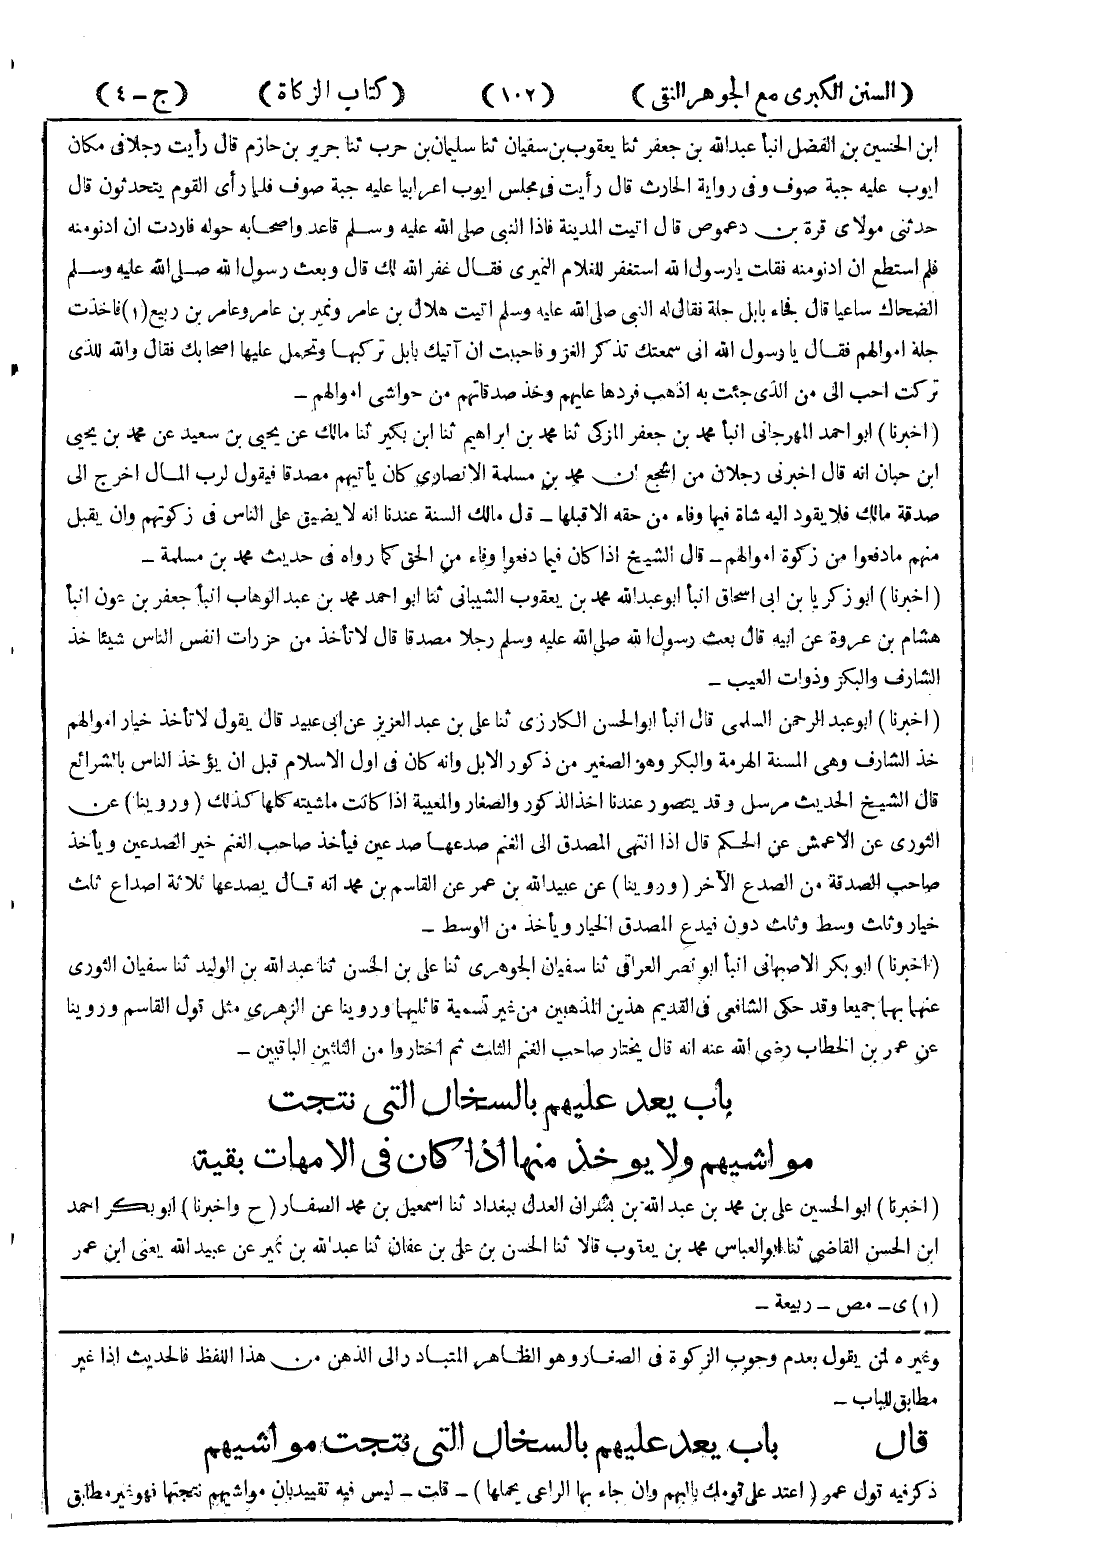 (السنن الكبرى مع الجوهر النقى) (١٠٢) (كتاب الزكاة) (ج - ٤)
ابن الحسين بن الفضل انبأ عبدالله بن جعفر ثنا يعقوب بن سفيان ثنا سليمان بن حرب ثنا جرير بن حازم قال رأيت رجلا فى مكان
ايوب عليه جبة صوف وفى رواية الحارث قال رأيت فى مجلس ايوب اعرابيا عليه جبة صوف فلما رأى القوم يتحدثون قال
حدثنى مولاى قرة بن دعموص قال اتيت المدينة فاذا النبى صلى الله عليه وسلم قاعد واصحابه حوله فاردت ان ادنومنه
فلم استطع ان ادنومنه فقلت يارسول الله استغفر للغلام النميرى فقال غفر الله لك قال وبعث رسول الله صلى الله عليه وسلم
الضحاك ساعيا قال فجاء بابل جلة فقال له النبى صلى الله عليه وسلم اتيت هلال بن عامر ونمير بن عامر وعامر بن ربيع (١) فاخذت
جلة اموالهم فقال يا رسول الله انى سمعتك تذكر الغزو فاحببت ان آتيك بابل تركبها وتحمل عليها اصحابك فقال والله للذى
تركت احب الى من الذى جئت به اذهب فردها عليهم وخذ صدقاتهم من حواشى اموالهم -
(اخبرنا) ابو احمد المهرجانى انبأ محمد بن جعفر المزكى ثنا محمد بن ابراهيم ثنا ابن بكير ثنا مالك عن يحيى بن سعيد عن محمد بن يحيى
ابن حبان انه قال اخبرنى رجلان من اشجع ان محمد بن مسلمة الانصارى كان يأتيهم مصدقا فيقول لرب المال اخرج الى
صدقة مالك فلا يقود اليه شاة فيها وفاء من حقه الا قبلها - قال مالك السنة عندنا انه لا يضيق على الناس فى زكوتهم وان يقبل
منهم مادفعوا من زكوة اموالهم - قال الشيخ اذا كان فيما دفعوا وفاء من الحق كما رواه فى حديث محمد بن مسلمة -
(اخبرنا) ابو زكريا بن ابى اسحاق انبأ ابو عبدالله محمد بن يعقوب الشيبانى ثنا ابو احمد محمد بن عبد الوهاب انبأ جعفر بن عون انبأ
هشام بن عروة عن ابيه قال بعث رسول الله صلى الله عليه وسلم رجلا مصدقا قال لا تأخذ من حزرات انفس الناس شيئا خذ
الشارف والبكر وذوات العيب -
(اخبرنا) ابو عبد الرحمن السلمى قال انبأ ابو الحسن الكارزى ثنا على بن عبد العزيز عن ابى عبيد قال يقول لا تأخذ خيار اموالهم
خذ الشارف وهى المسنة الهرمة والبكر وهو الصغير من ذكور الابل وانه كان فى اول الاسلام قبل ان يؤخذ الناس بالشرائع
قال الشيخ الحديث مرسل وقد يتصور عندنا اخذ الذكور والصغار والمعيبة اذا كانت ماشيته كلها كذلك (وروينا) عن
الثورى عن الاعمش عن الحكم قال اذا انتهى المصدق الى الغنم صدعها صدعين فيأخذ صاحب الغنم خير الصدعين ويأخذ
صاحب الصدقة من الصدع الآخر (وروينا) عن عبيدالله بن عمر عن القاسم بن محمد انه قال يصدعها ثلاثة اصداع ثلث
خيار وثلث وسط وثلث دون فيدع المصدق الخيار ويأخذ من الوسط -
(اخبرنا) ابو بكر الاصبهانى انبأ ابو نصر العراقى ثنا سفيان الجوهرى ثنا على بن الحسن ثنا عبد الله بن الوليد ثنا سفيان الثورى
عنهما بهما جميعا وقد حكى الشافعى فى القديم هذين المذهبين من غير تسمية قائليهما وروينا عن الزهرى مثل قول القاسم وروينا
عن عمر بن الخطاب رضى الله عنه انه قال يختار صاحب الغنم الثلث ثم اختاروا من الثلثين الباقيين -
باب يعد عليهم بالسخال التى نتجت
مواشيهم ولا يوخذ منها اذا كان فى الامهات بقية
(اخبرنا) ابو الحسين على بن محمد بن عبد الله بن بشران العدل ببغداد ثنا اسمعيل بن محمد الصفار (ح واخبرنا) ابو بكر احمد
ابن الحسن القاضى ثنا ابو العباس محمد بن يعقوب قالا ثنا الحسن بن على بن عفان ثنا عبد الله بن نمير عن عبيد الله يعنى ابن عمر
(١) ى - مص - ربيعة -
وغيره لمن يقول بعدم وجوب الزكوة فى الصغار وهو الظاهر المتبادر الى الذهن من هذا اللفظ فالحديث اذا غير
مطابق للباب -
قال باب يعد عليهم بالسخال التى نتجت مواشيهم
ذكر فيه قول عمر (اعتد على قومك بالبهم وان جاء بها الراعى يحملها) - قلت - ليس فيه تقييد بان مواشيهم نتجتها فهو غير مطابق